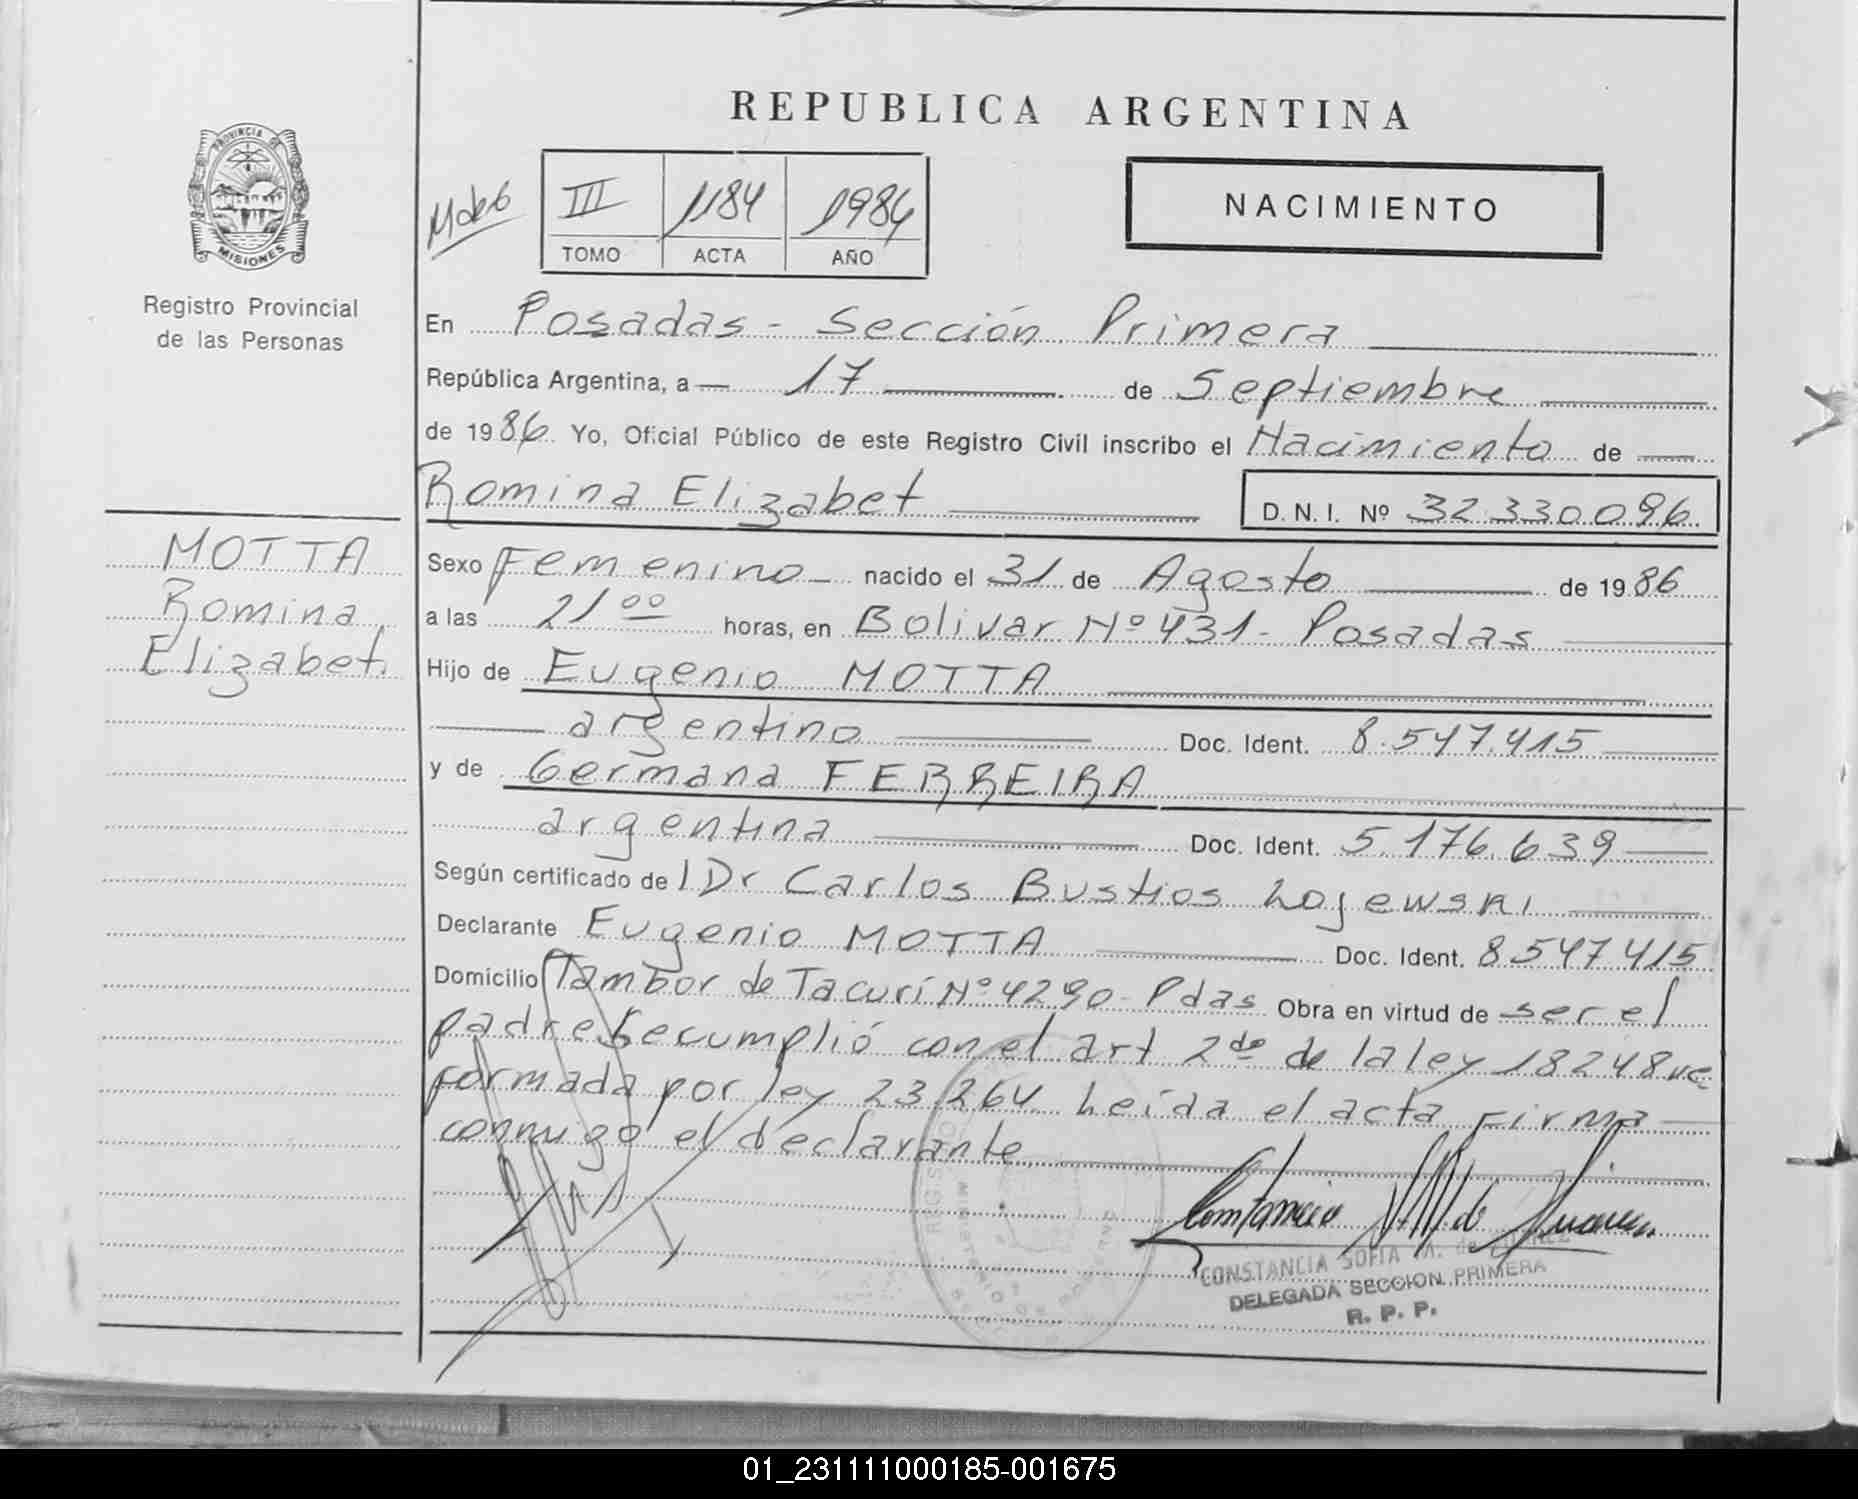 REPUBLICA ARGENTINA
PROVINCIA DE
MISIONES
Registro Provincial
de las Personas
III 1184 1986
TOMO ACTA AÑO
NACIMIENTO
En Posadas - Sección Primera
República Argentina, a 17 de Septiembre
de 1986 Yo, Oficial Público de este Registro Civil inscribo el Nacimiento de
Romina Elizabet D.N.I. Nº 32.330.096
MOTTA
Romina
Elizabet.
Sexo Femenino nacido el 31 de Agosto de 1986
a las 21 00 horas, en Bolivar Nº 431 - Posadas
Hijo de Eugenio MOTTA
argentino Doc. Ident. 8.547.415
y de Germana FERREIRA
argentina Doc. Ident. 5.176.639
Según certificado del Dr Carlos Bustios Lojewski
Declarante Eugenio MOTTA Doc. Ident. 8.547.415
Domicilio Tambor de Tacuri Nº 4290 - Pdas Obra en virtud de ser el
padre Se cumplió con el art 2do de la ley 18248 re
formada por ley 23.264 Leída el acta Firma
conmigo el declarante
CONSTANCIA SOFIA M. de
DELEGADA SECCION PRIMERA
R. P. P.
01_231111000185-001675